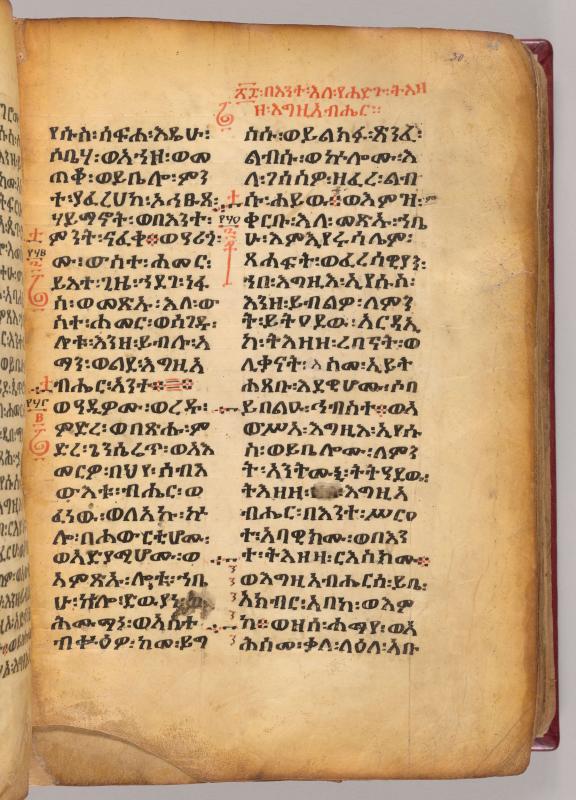 ፳፫፡በእንተ፡እለ፡የሐድጉ፡ትእዛ
ዘ፡እግዚአብሔር።
የሱስ፡ሰፍሐ፡እዴሁ፡
ሶቤሃ፡ወአኀዘ፡ወመ
ጠቆ፡ወይቤሎ፡ምን
ት፡ያፈረሀከ፡ኦሕፁጸ፡
ሃይማኖት፡ወበእንተ፡
ምንት፡ናፈቀ፡ወዓሪጎ፡
ሙ፡ውስተ፡ሐመር፡
ይእተ፡ጊዜ፡ኀደገ፡ነፋ
ስ፡ወመጽኡ፡እለ፡ው
ስተ፡ሐመር፡ወሰገዱ፡
ሎቱ፡እንዘ፡ይብሉ፡አ
ማን፡ወልደ፡እግዚአ
ብሔር፡አንተ።
ወዓዲዎሙ፡ወረዱ፡
ምድረ፡ወበጽሑ፡ም
ድረ፡ጌንሴሬጥ፡ወአእ
መርዎ፡በህየ፡ሰብአ
ውእቱ፡ብሔር፡ወ
ፈነዉ፡ወለአኩ፡ኵ
ሎ፡በሐውርቲሆሙ፡
ወአድያሚሆሙ፡ወ
አምጽኡ፡ሎቱ፡ኀበ
ሁ፡ኵሎ፡ድዉያን፡
ሕሙማን፡ወአስተ
ብቍዕዎ፡ከመ፡ይግ
ሰሱ፡ወይልክፉ፡ጽንፈ፡
ልብሱ፡ወኵሎሙ፡እ
ለ፡ገሰስዎ፡ዘፈረ፡ልብ
ሱ፡ሐይዉ።ወእምዝ፡
ቀርቡ፡እለ፡መጽኡ፡ኀቤ
ሁ፡እምኢየሩሳሌም፡
ጸሐፍት፡ወፈሪሳዊያን፡
ኀበ፡እግዚእ፡ኢየሱስ፡
እንዘ፡ይብልዎ፡ለምን
ት፡ይትዐደዉ፡አርዳኢ
ከ፡ትእዘዘ፡ረበናት፡ወ
ሊቃናት፡እስመ፡ኢይት
ሐጸቡ፡እደዊሆሙ፡ሶበ
ይበልዑ፡ኅብስተ።ወአ
ውሥአ፡እግዚእ፡ኢየሱ
ስ፡ወይቤሎሙ፡ለምን
ት፡አንትሙኒ፡ትትዓደዉ፡
ትእዘዘ፡እግዚአ
ብሔር፡በእንተ፡ሥርዐ
ተ፡አባዊክሙ፡ወበእን
ተ፡ትእዛዛ፡ርእስክሙ።
ወእግዚአብሔርሰ፡ይቤ፡
አክብር፡አባከ፡ወእም
ከ።ወዘሰ፡ሐማየ፡ወአ
ሕሰመ፡ቃለ፡ላዕለ፡አቡ